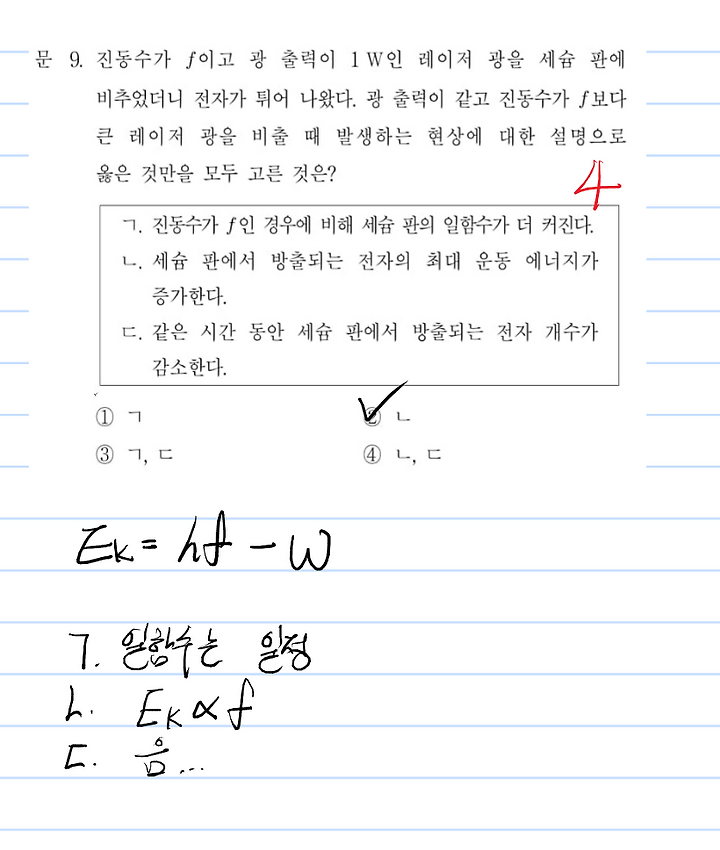 문 9. 진동수가 f이고 광 출력이 1 W인 레이저 광을 세슘 판에
비추었더니 전자가 튀어 나왔다. 광 출력이 같고 진동수가 f보다
큰 레이저 광을 비출 때 발생하는 현상에 대한 설명으로
옳은 것만을 모두 고른 것은?
4
ㄱ. 진동수가 f인 경우에 비해 세슘 판의 일함수가 더 커진다.
ㄴ. 세슘 판에서 방출되는 전자의 최대 운동 에너지가
증가한다.
ㄷ. 같은 시간 동안 세슘 판에서 방출되는 전자 개수가
감소한다.
① ㄱ ② ㄴ
③ ㄱ, ㄷ ④ ㄴ, ㄷ
EK = hf - W
ㄱ. 일함수는 일정
ㄴ. EK ∝ f
ㄷ. 음...